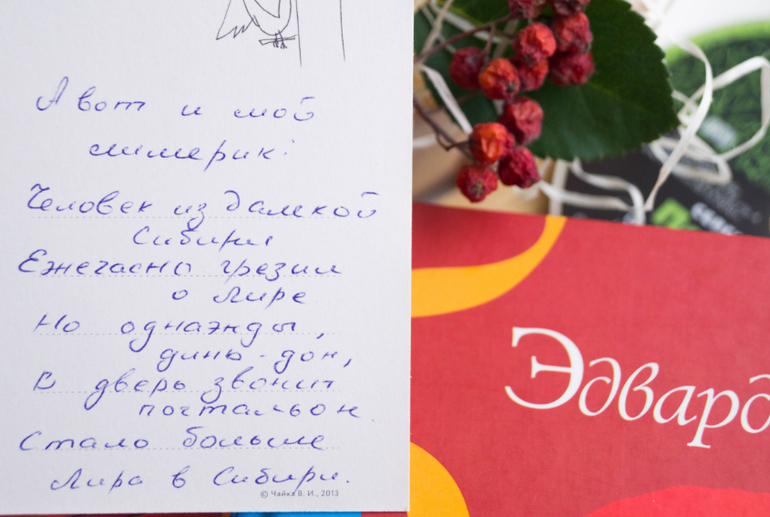 А вот и мой
лимерик:
Человек из далекой
Сибири
Ежечасно грезил
о Лире
Но однажды,
динь-дон,
В дверь звонит
почтальон
Стало больше
Лира в Сибири.
© Чайка В. И., 2013
Эдвард